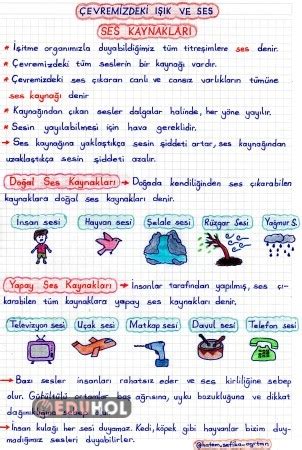 ÇEVREMİZDEKİ IŞIK VE SES
SES KAYNAKLARI
* İşitme organımızla duyabildiğimiz tüm titreşimlere ses denir.
* Çevremizdeki tüm seslerin bir kaynağı vardır.
* Çevremizdeki ses çıkaran canlı ve cansız varlıkların tümüne
ses kaynağı denir
* Kaynağından çıkan sesler dalgalar halinde, her yöne yayılır.
* Sesin yayılabilmesi için hava gereklidir.
→ Ses kaynağına yaklaştıkça sesin şiddeti artar, ses kaynağından
uzaklaştıkça sesin şiddeti azalır.
Doğal Ses Kaynakları → Doğada kendiliğinden ses çıkarabilen
kaynaklara doğal ses kaynakları denir.
İnsan sesi Hayvan sesi Şelale sesi Rüzgar Sesi Yağmur S.
Yapay Ses Kaynakları → İnsanlar tarafından yapılmış, ses çı-
karabilen tüm kaynaklara yapay ses kaynakları denir.
Televizyon sesi Uçak sesi Matkap sesi Davul sesi Telefon sesi
→ Bazı sesler insanları rahatsız eder ve ses kirliliğine sebep
olur. Gürültülü ortamlar baş ağrısına, uyku bozukluğuna ve dikkat
dağınıklığına sebep olur.
EDUHOL
→ İnsan kulağı her sesi duyamaz. Kedi, köpek gibi hayvanlar bizim duy-
madığımız sesleri duyabilirler.